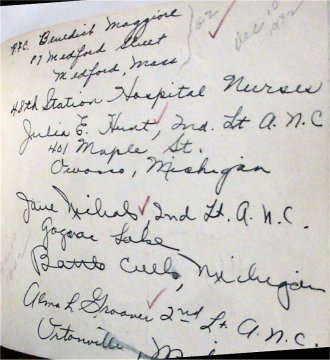 Pfc. Benedict Maggiore
87 Medford Street
Medford, Mass
Dec 10
48th Station Hospital Nurses
Julia E. Hunt, 2nd. Lt A. N. C
401 Maple St.
Owosso, Michigan
Jane Nichols 2nd Lt. A. N. C.
Goguac Lake
Battle Creek, Michigan
Alma L Groover 2nd Lt. A. N. C.
Ortonville,